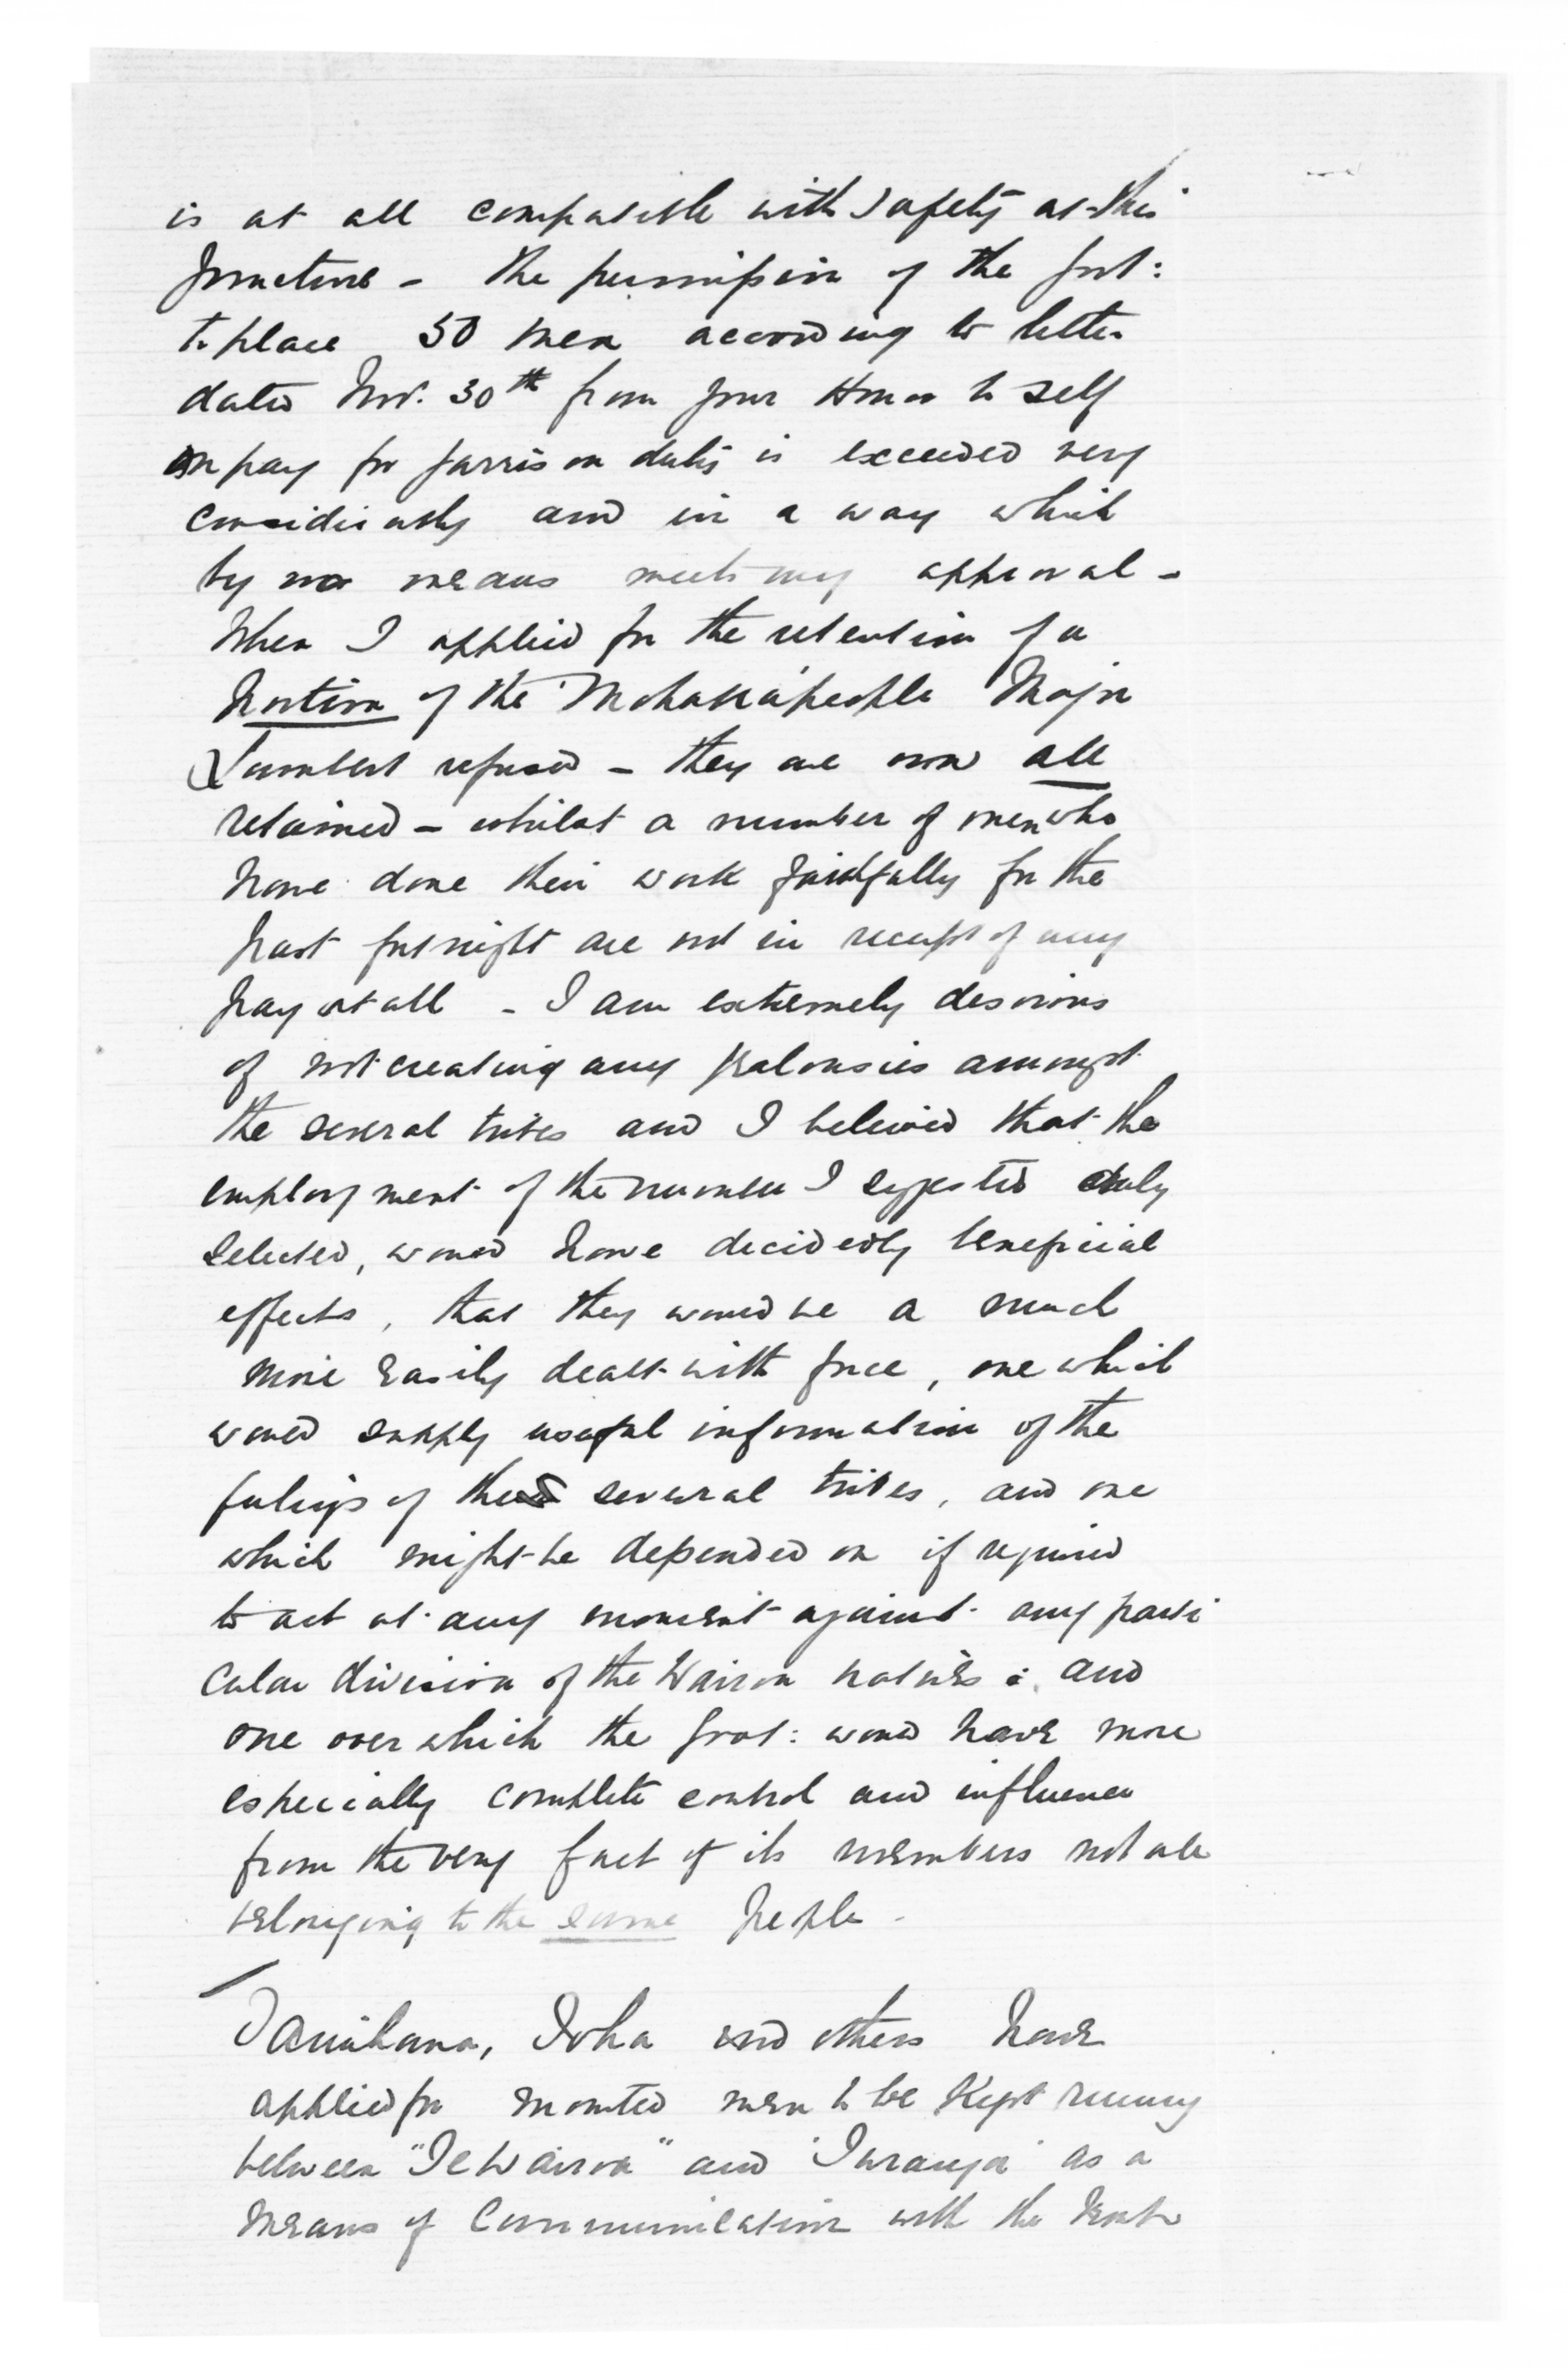 is at all compatible with safety at this
juncture - the permission of the Govt:
to place 50 men according to letter
dated Nov. 30th from your Honor to self
on pay for garrison duty is exceeded very
considerably and in a way which
by no means meets my approval -
When I applied for the retention of a
portion of the Mohaka people Major
Lambert refused - they are now all
retained - whilst a number of men who
have done their work faithfully for the
past fortnight are not in receipt of any
pay at all - I am extremely desirous
of not creating any jealousies amongst
the several tribes and I believed that the
employment of the number I suggested duly
selected, would have decidedly beneficial
effects, that they would be a much
more easily dealt with force, one which
would supply useful information of the
feelings of the several tribes, and one
which might be depended on if required
to act at any moment against any parti
cular division of the Wairoa natives: and
one over which the Govt: would have more
especially complete control and influence
from the very fact of its members not all
belonging to the same people -
Tamihana, Ihaka and others have
applied for mounted men to be kept running
between "Te Wairoa" and 'Turanga' as a
means of communication with the